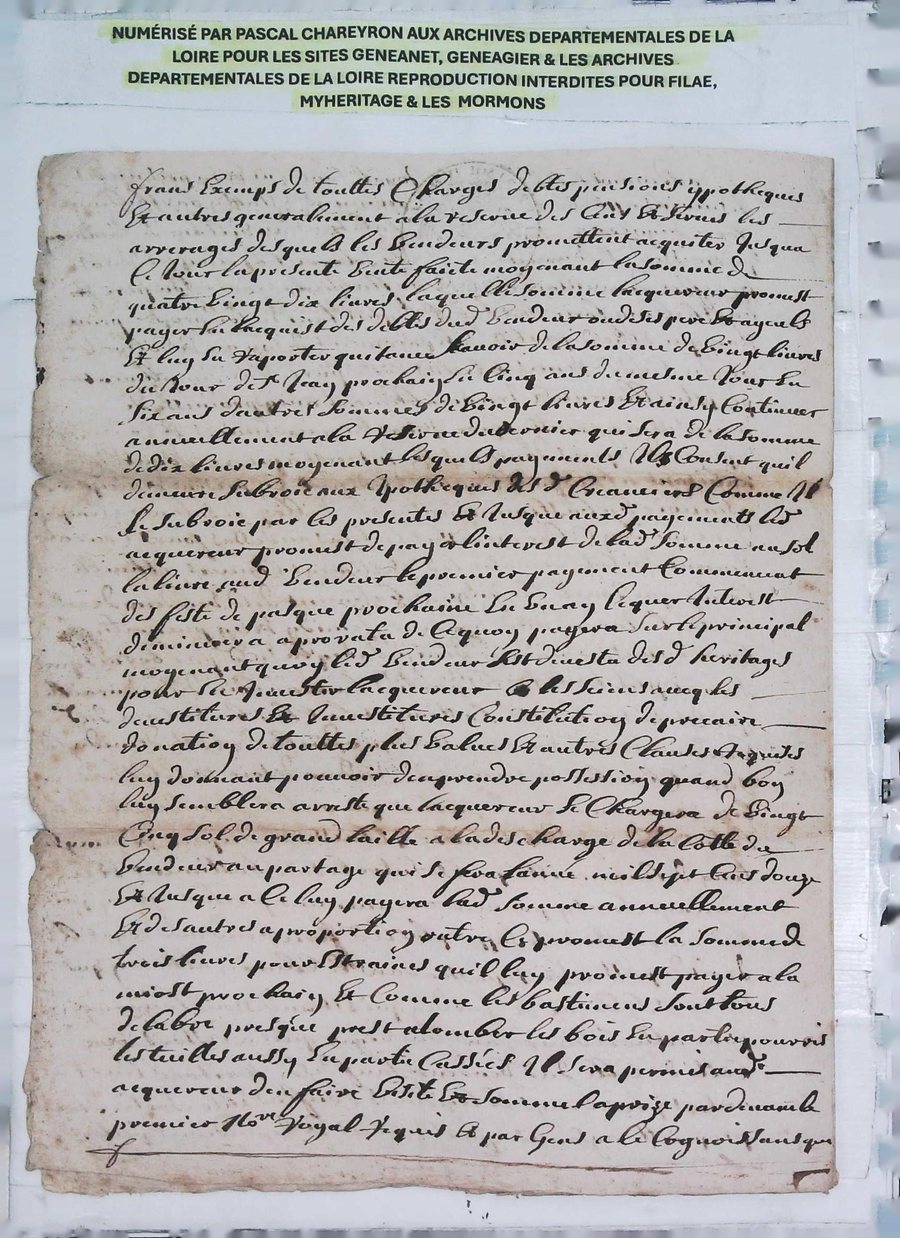 NUMÉRISÉ PAR PASCAL CHAREYRON AUX ARCHIVES DEPARTEMENTALES DE LA
LOIRE POUR LES SITES GENEANET, GENEAGIER & LES ARCHIVES
DEPARTEMENTALES DE LA LOIRE REPRODUCTION INTERDITES POUR FILAE,
MYHERITAGE & LES MORMONS
frans Exemps de touttes Charges debtes pensions ypotheques
Et autres generalement a la reserve des Cens Et servis les
arrerages desquels les Vendeurs promettent acquiter Jusqua
Ce Jour la presente Vente faicte moyenant la somme de
quatre Vingt dix livres laquelle somme lacquereur promest
payer En lacquist des debtes dud Vendeur ou de ses pere Et ayeuls
Et luy En raporter quitance scavoir de la somme de Vingt livres
du Jour de st Jean prochain En Cinq ans du mesme Jour En
Six ans dautres sommes de Vingt livres Et ainsy Continuer
annuellement a la reserve du dernier qui sera de la somme
de dix livres moyenant lesquels payements Ils Consent quil
demeure Subroié aux Ypotheques des d Creanciers Comme Il
Le Subroie par les presentes Et Jusque auxd payements led
acquereur promest de payer linterest de lad somme au sol
la livre aud Vendeur le premier payement Commencant
des feste de pasque prochaine En Un an lequel Interest
diminuera a prorata de Ce quoy payera sur le principal
moyenant quoy led Vendeur sest devestu desd heritages
pour En Investir lacquereur Et les siens avec les
devestitures Et Investitures Constitution de precaire
donation de touttes plus Values Et autres Clauses requises
luy donnant pouvoir den prendre possession quand bon
luy semblera arresté que lacquereur Se Chargera de Vingt
Cinq sol de grand taille a la descharge de la Cotte du
Vendeur au partage qui se fera lannee mil sept Cens douze
Et Jusque a Ce luy payera lad somme annuellement
Et des autres a proportion outre Ce promest la somme de
trois livres pour Estraines quil luy promest payer a la
miost prochain Et Comme les bastimens sont tous
delabre presque prest a tomber les bois En partie pourris
les tuilles aussy En partie Cassées Il sera permis aud
acquereur den faire Visite Et sommelaprize pardevant le
premier Nore Royal requis Et par Gens a Ce Cognoissans que